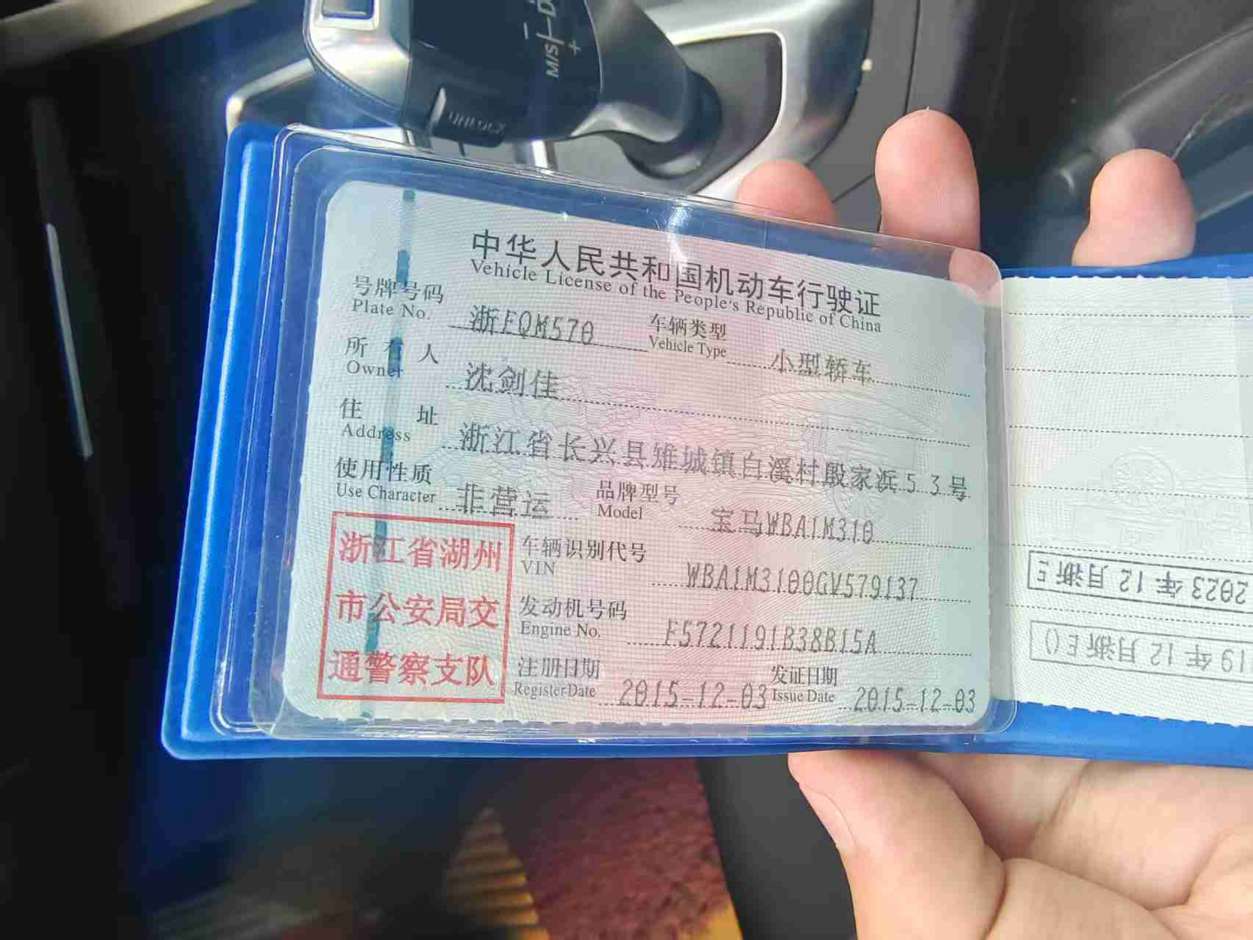 M/S
D
+
UNLOCK
中华人民共和国机动车行驶证
Vehicle License of the People's Republic of China
号牌号码 浙FQM570 车辆类型 小型轿车
Plate No. Vehicle Type
所有人 沈剑佳
Owner
住址 浙江省长兴县雉城镇白溪村殷家浜53号
Address
使用性质 非营运 品牌型号 宝马WBA1M310
Use Character Model
浙江省湖州
市公安局交
通警察支队
车辆识别代号 WBA1M3100GV579137
VIN
发动机号码 F5721191B38B15A
Engine No.
注册日期 2015-12-03 发证日期 2015-12-03
Register Date Issue Date
2023年12月浙E
19年12月浙E()